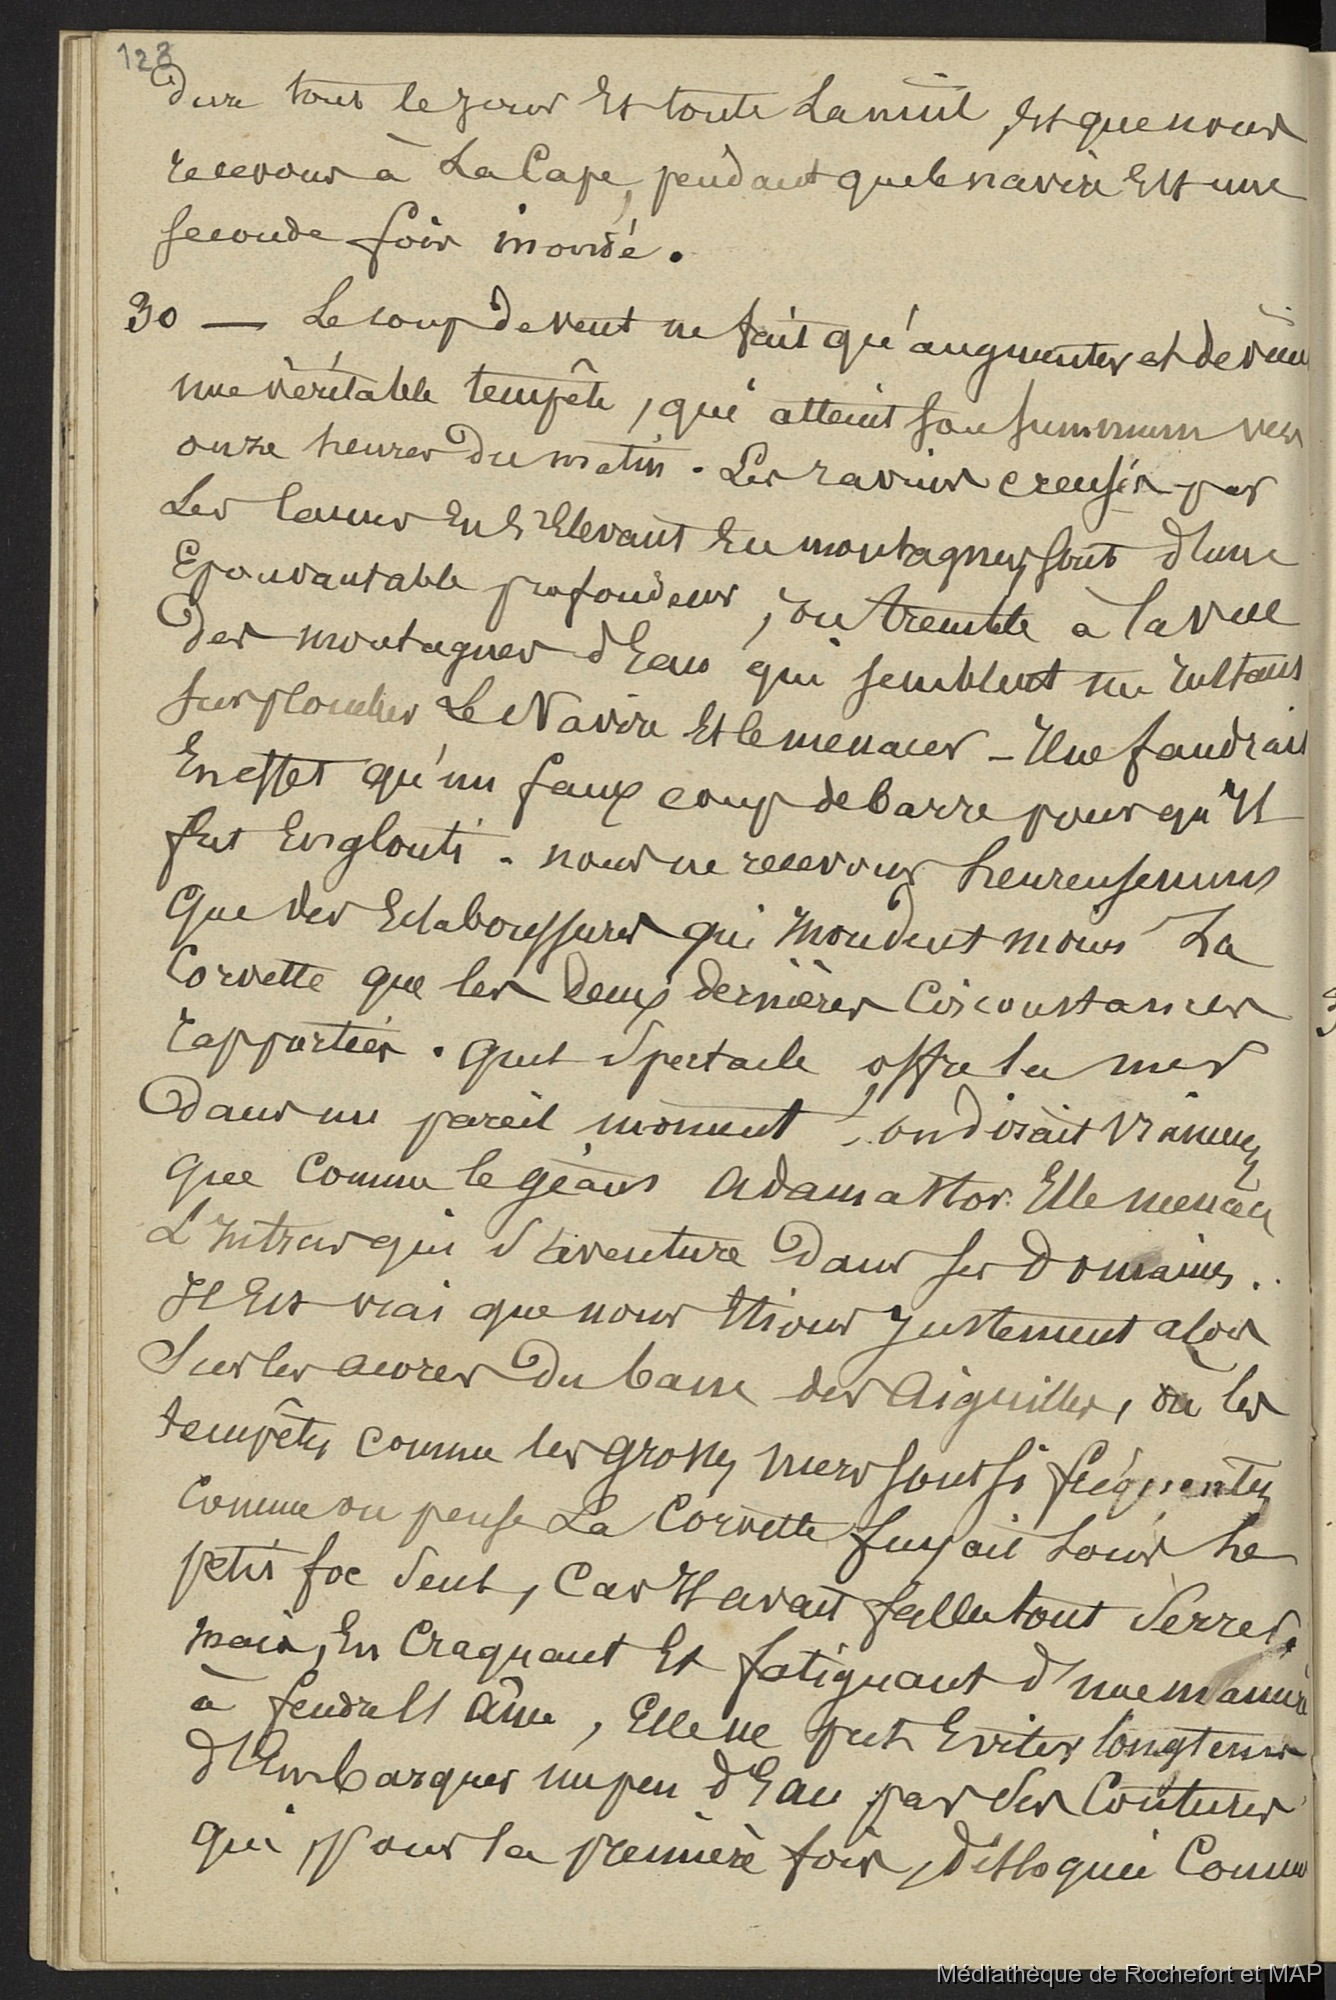 128
dure tout le jour Et toute La nuit, Et que nous
recevons à La Cape, pendant que le navire Est une
seconde fois inondé.
30 — Le coup de vent ne fait qu'augmenter et devient
une véritable tempête, qui atteint son summum vers
onze heures Du matin. Les ravins creusés par
Les lames En s'Elevant En montagnes, sont d'une
Epouvantable profondeur, on tremble à la vue
Des montagnes d'Eau qui semblent un instant
surplomber Le Navire Et le menacer – Il ne faudrait
En effet qu'un faux coup de barre pour qu'Il
fut Englouti. nous ne recevons heureusement
Que des Eclaboussures qui Inondent moins La
Corvette que les deux dernières Circonstances
rapportées. quel Spectacle offre la mer
Dans un pareil moment !, on dirait vraiment
Que Comme le géant Adamastor Elle menace
L'Intrus qui S'aventure Dans ses Domaines.
Il Est vrai que nous Etions Justement alors
Sur les accores Du banc des Aiguilles, où les
tempêtes comme les grosses mers sont si fréquentes
Comme on pense La Corvette fuyait sous Le
petit foc Seul, Car Il avait fallu tout Serrer,
mais, En Craquant Et fatiguant d'une manière
à fendre l'âme, Elle ne put Eviter longtems
d'Embarquer un peu d'Eau par Ses Coutures
qui, pour la première fois, disloquées Comme
Médiathèque de Rochefort et MAP